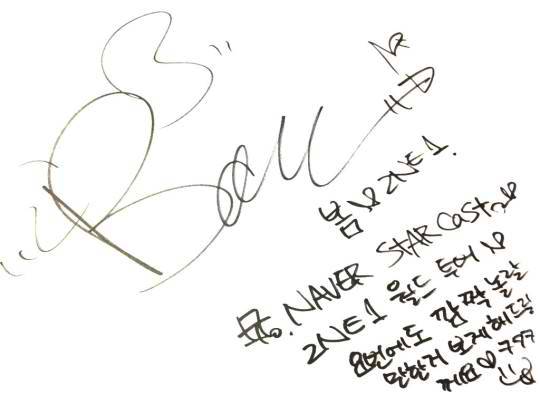 Bom
봄 ♡ 2NE1.
To. NAVER STAR CAST ♡
2NE1 월드 투어 ♡
요번에도 깜짝 놀랄
만한거 보게해드릴
께요 ♡ ㅋㅋㅋ